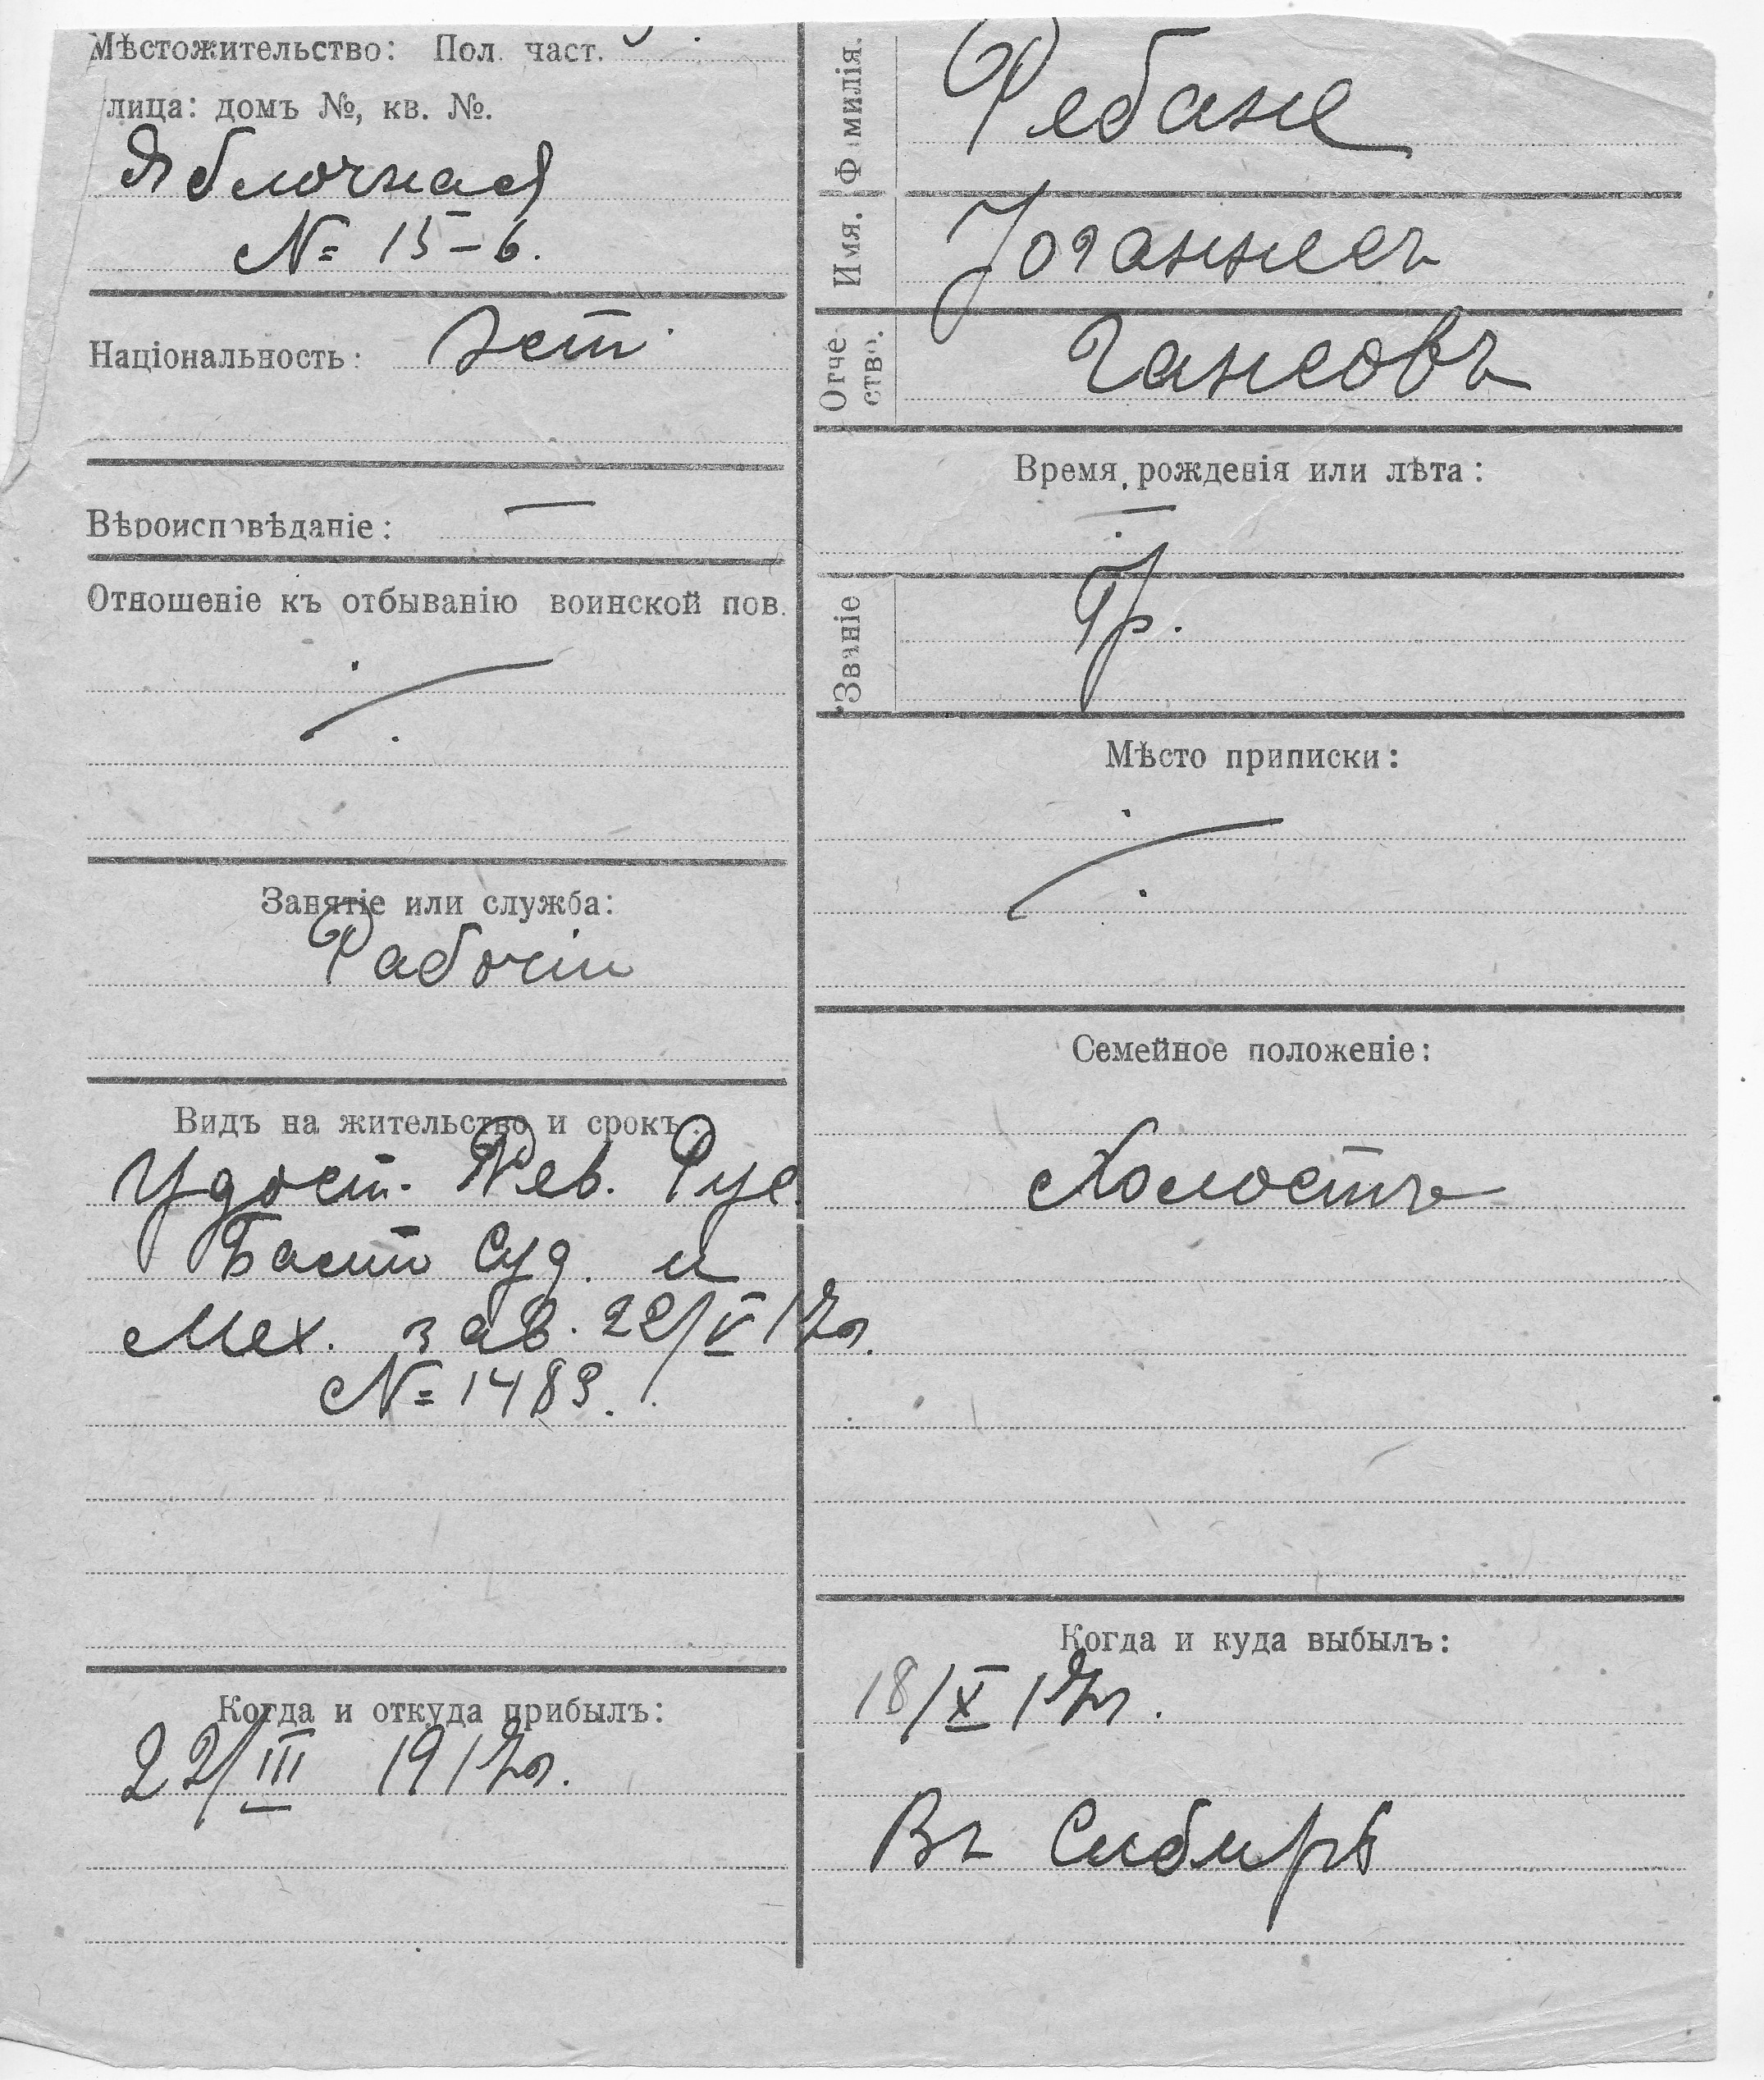 Мѣстожительство: Пол. част.
лица: домъ №, кв. №.
Яблочная
№ 15-6.
Національность: Эст.
Вѣроисповѣданіе: —
Отношеніе къ отбыванію воинской пов.
Занятіе или служба:
Рабочій
Видъ на жительство и срокъ:
Удост. Рев. Рус.
Балт Суд. и
Мех. зав. 22/V 17г.
№ 1489.
Когда и откуда прибылъ:
22/III 1917г.
Фамилія. Ребане
Имя. Іоганнес
Отчество. Гансовъ
Время рожденія или лѣта:
—
Званіе Гр.
Мѣсто приписки:
Семейное положеніе:
Холостъ
Когда и куда выбылъ:
18/X 17г.
Въ Сибирь